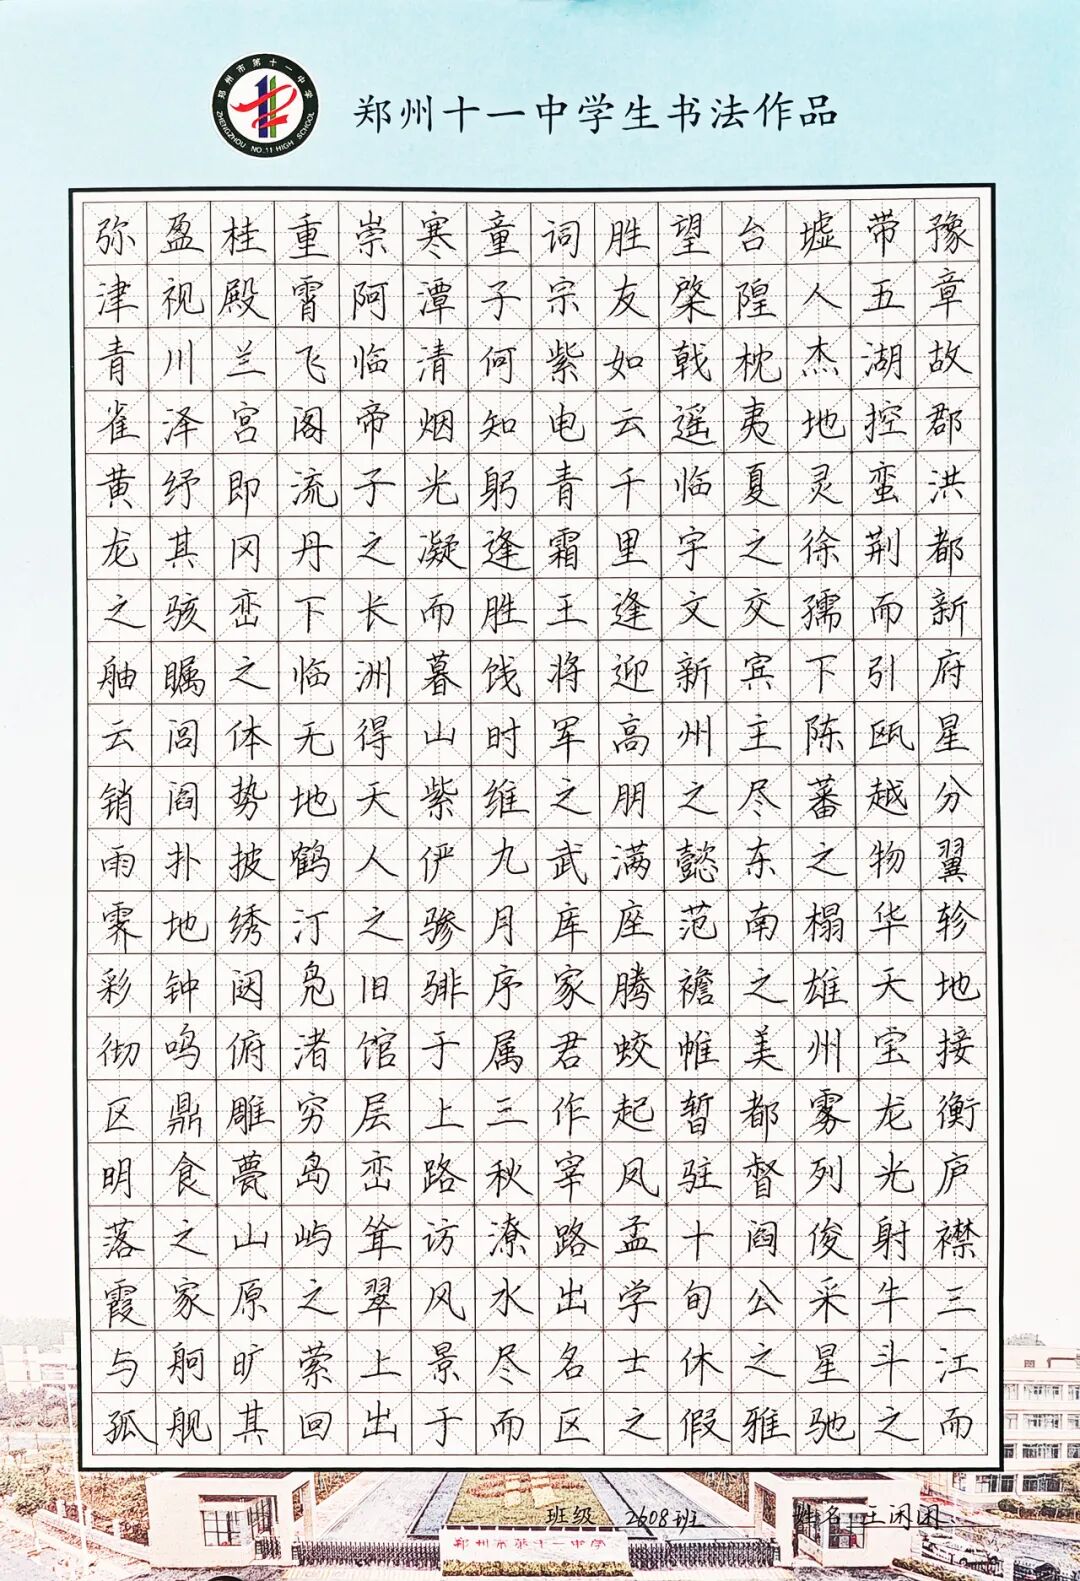 郑州市第十一中学
ZHENGZHOU NO.11 HIGH SCHOOL
郑州十一中学生书法作品
豫章故郡洪都新府星分翼轸地接衡庐襟三江而
带五湖控蛮荆而引瓯越物华天宝龙光射牛斗之
墟人杰地灵徐孺下陈蕃之榻雄州雾列俊采星驰
台隍枕夷夏之交宾主尽东南之美都督阎公之雅
望棨戟遥临宇文新州之懿范襜帷暂驻十旬休假
胜友如云千里逢迎高朋满座腾蛟起凤孟学士之
词宗紫电青霜王将军之武库家君作宰路出名区
童子何知躬逢胜饯时维九月序属三秋潦水尽而
寒潭清烟光凝而暮山紫俨骖騑于上路访风景于
崇阿临帝子之长洲得天人之旧馆层峦耸翠上出
重霄飞阁流丹下临无地鹤汀凫渚穷岛屿之萦回
桂殿兰宫即冈峦之体势披绣闼俯雕甍山原旷其
盈视川泽纾其骇瞩闾阎扑地钟鸣鼎食之家舸舰
弥津青雀黄龙之舳云销雨霁彩彻区明落霞与孤
班级 2608班 姓名 王闲闲
郑州市第十一中学